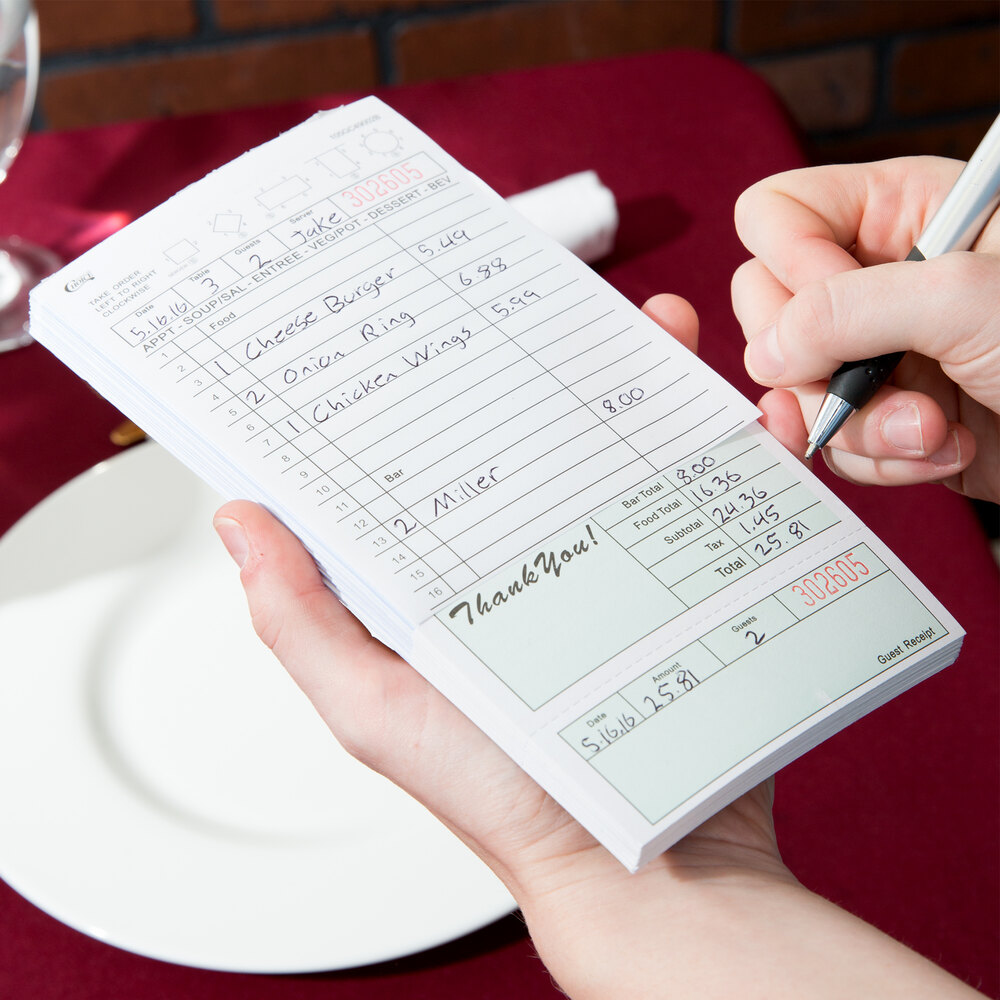 105GC4902B
TAKE ORDER
LEFT TO RIGHT
CLOCKWISE
Date Table Guests Server
5.16.16 3 2 Jake 302605
APPT - SOUP/SAL - ENTREE - VEG/POT - DESSERT - BEV
Food
1
2
3 1 Cheese Burger 5.49
4
5 2 Onion Ring 6.88
6
7 1 Chicken Wings 5.99
8
9
10 Bar
11
12
13 2 Miller 8.00
14
15
16
Bar Total 8.00
Food Total 16.36
Subtotal 24.36
Tax 1.45
Total 25.81
Thank You!
Date Amount Guests
5.16.16 25.81 2 302605
Guest Receipt